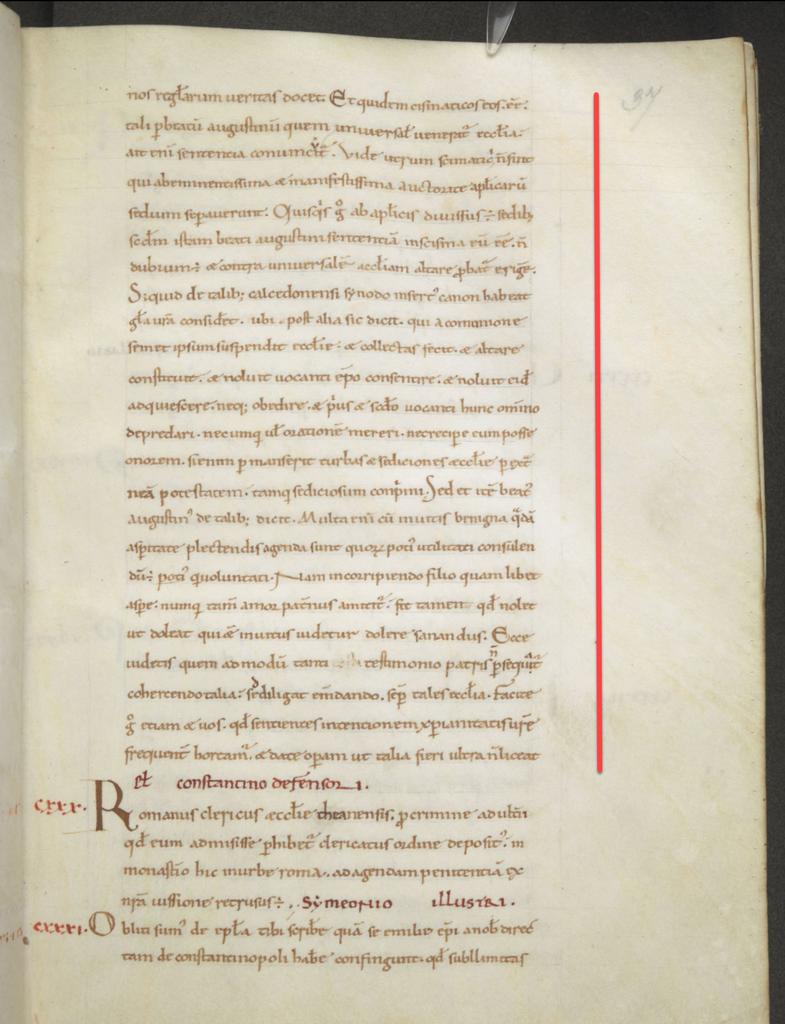 37
nos regłarum veritas docet. Et quidem cismaticos eos. eē.
tali ꝑbatū augustinū quem universał venerat᷑ eccłia.
ait eni sentencia convincit᷑. Vide utrum scimatici ñ sint
qui ab eminentissima & manifestissima auctoritate apłicarū
sedium seperaverunt. Quisqis g̊ ab apłicis divissus ÷ sedib;
scdm istam beati augustini sentenciā in scisma eū eē. ñ
dubium÷ & contra universalē aeccłiam altare ꝓbat᷑ erigē.
Si quid de talib; calcedonensi synodo insert᷒ canon habeat
gła ura consideret. ubi. post alia sic dicit. qui a comunione
semet ipsum suspendit eccłie. & collectas fecit. & altare
constituit. & noluit vocanti ēpo consentire. & noluit eid
adquiescere. neq; obedire. & p̊us & scdo vocanti hunc omino
depredari. nec umq uł oratione mereri. nec recipe eum posse
onorem. si enim ꝑmanserit turbas & sediciones aeccłie ꝑ ext᷑
neā potestatem. tamq sediciosum conp̊mi. Sed et itē beat᷒
augustin᷒ de talib; dicit. Multa eni cū invitis benigna q̄dā
asꝑitate plectendis agenda sunt quoꝝ poci᷒ utilitati consulen
dū÷ poci᷒ q̄ voluntati. Nam in corripiendo filio quam libet
aspe. numq tam̄ amor pat̄nus amittit᷑. fit tamen qđ nolet
ut doleat qui & invitus videtur dolere sanandus. Ecce
videtis quem admodū tanti testimonio patris ꝑsequit᷑
cohercendo talia. s; diligat emdando. sep̄ tales eccłia. Facite
g̊ etiam & vos. qđ sentientes intencionem xp̄ianitatis urē
frequent᷑ hortam᷑. & date opam ut talia fieri ultra ñ liceat
Peł constantino defensori.
cxxx. Romanus clericus aeccłie theanensis. ꝓ crimine adulťii
qđ eum admisisse ꝑhibet᷑ clericatus ordine deposit᷒. in
monastio hic in urbe roma. ad agendam penitenciā ex
nra iussione retrusus÷. Symeonio illustri.
cxxxi. Obliti sum᷒ de epła tibi scribe quā se emilie ēpi a nob direc
tam de constantinopoli habē confingunt. qđ subllimitas